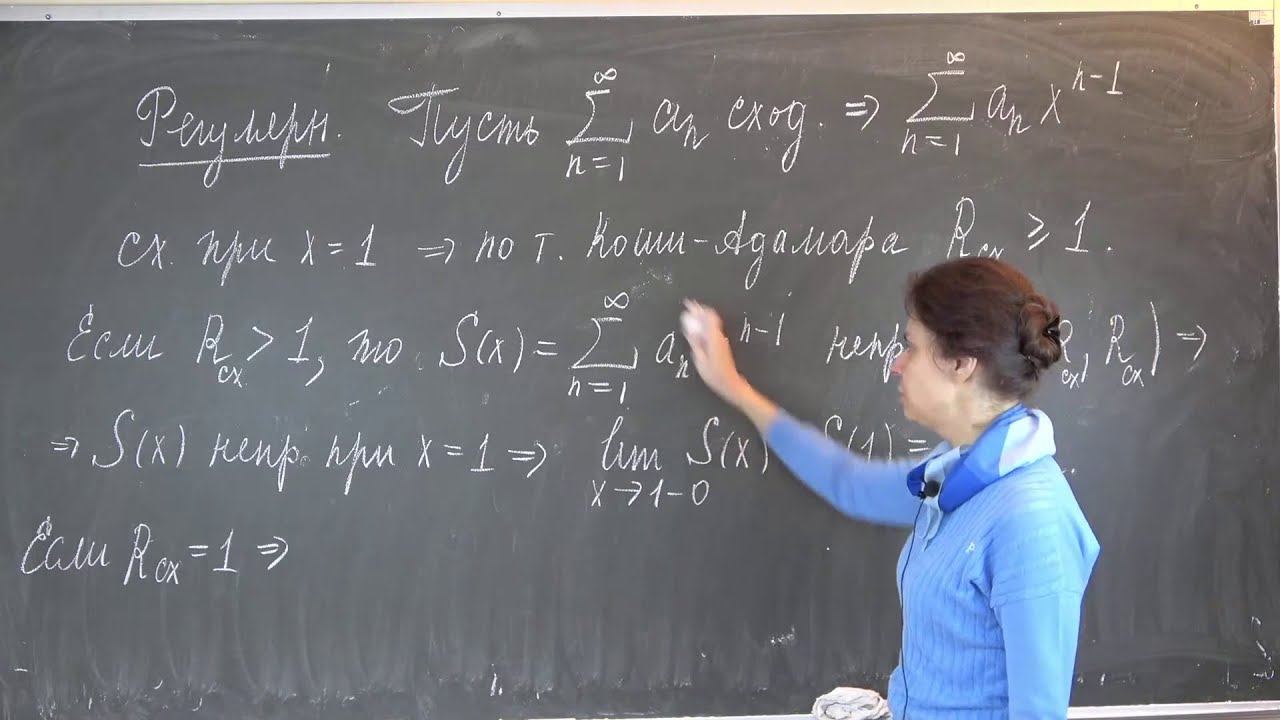 Регулярн. Пусть ∑_{n=1}^{∞} a_n сход. ⇒ ∑_{n=1}^{∞} a_n x^{n-1}
сх. при x = 1 ⇒ по т. Коши-Адамара R_{сх} ≥ 1.
Если R_{сх} > 1, то S(x) = ∑_{n=1}^{∞} a_n ^{n-1} непр R_{сх}, R_{сх}) ⇒
⇒ S(x) непр. при x = 1 ⇒ lim_{x→1-0} S(x) S(1) =
Если R_{сх} = 1 ⇒